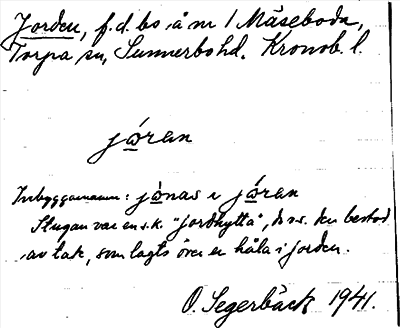 Jorden, f.d. bs å nr 1 Måseboda,
Torpa sn, Sunnerbo hd. Kronob. l.
jóran
Inbyggarnamn: jónas i jóran
Stugan var en s.k. "jordhytta", d.v.s. den bestod
av tak, som lagts över en håla i jorden.
O. Segerbäck 1941.